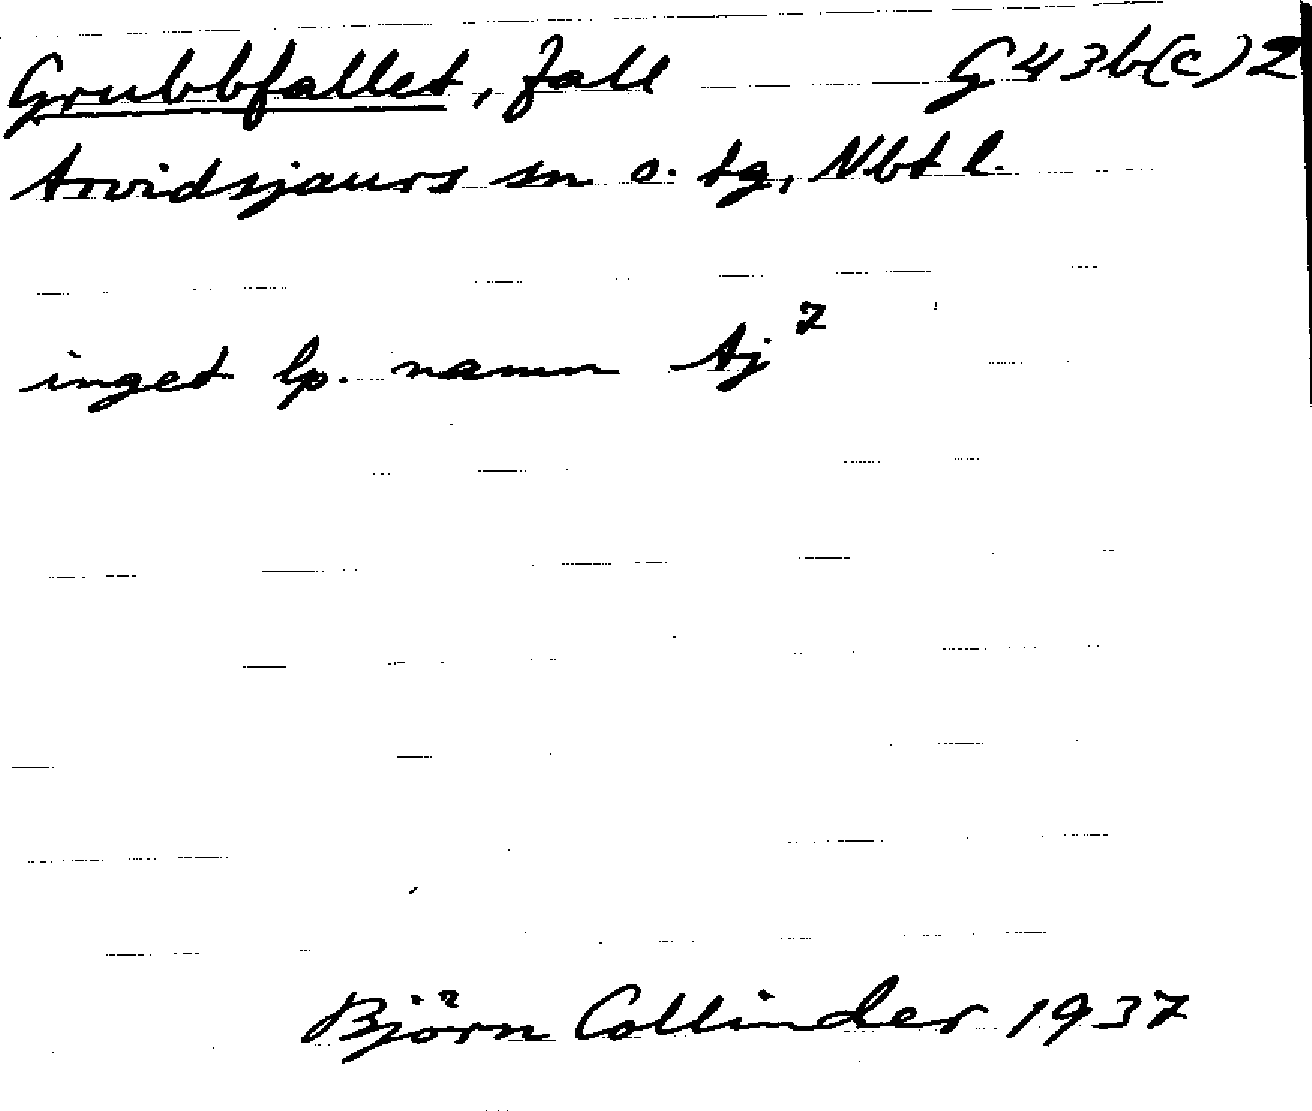 Grubbfallet, fall G43b(c)2
Arvidsjaurs sn o. tg, Nbt l.
inget lp. namn Aj 7
Björn Collinder 1937